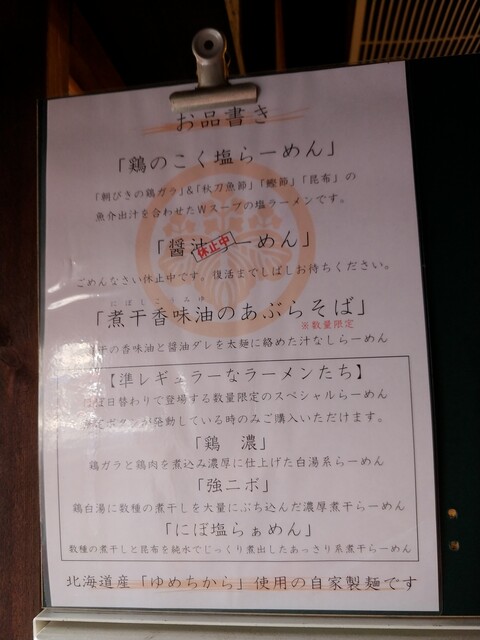 お品書き
「鶏のこく塩らーめん」
「朝びきの鶏ガラ」&「秋刀魚節」「鰹節」「昆布」の
魚介出汁を合わせたWスープの塩ラーメンです。
「醤油らーめん」
休止中
ごめんなさい休止中です。復活までしばしお待ちください。
にぼしこうみゆ
「煮干香味油のあぶらそば」
※数量限定
干の香味油と醤油ダレを太麺に絡めた汁なしらーめん
【準レギュラーなラーメンたち】
ほぼ日替わりで登場する数量限定のスペシャルらーめん
ボタンが発動している時のみご購入いただけます。
「鶏 濃」
鶏ガラと鶏肉を煮込み濃厚に仕上げた白湯系らーめん
「強ニボ」
鶏白湯に数種の煮干しを大量にぶち込んだ濃厚煮干らーめん
「にぼ塩らぁめん」
数種の煮干しと昆布を純水でじっくり煮出したあっさり系煮干らーめん
北海道産「ゆめちから」使用の自家製麺です